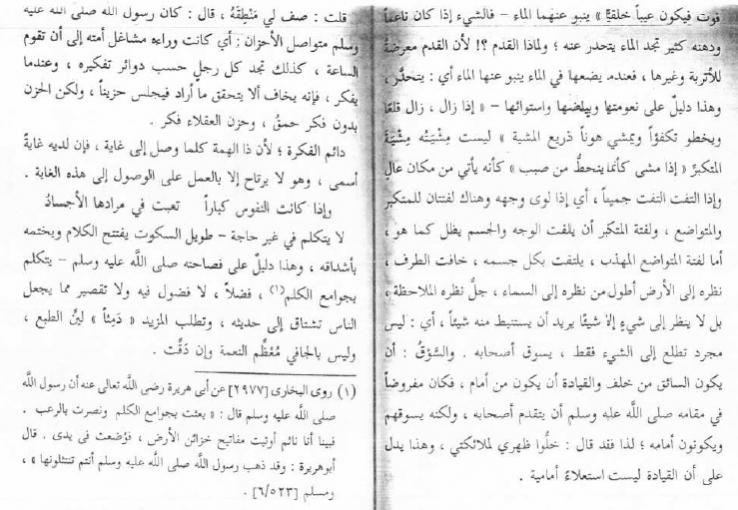 فوت فيكون عيباً خلقيًّا » ينبو عنهما الماء - فالشيء إذا كان ناعماً
ودهنه كثير تجد الماء يتحدر عنه ؛ ولماذا القدم ؟! لأن القدم معرضة
للأتربة وغيرها ، فعندما يضعها في الماء ينبو عنها الماء أي : يتحدَّر ،
وهذا دليلٌ على نعومتها وبياضها واستوائها – « إذا زال ، زال قلعًا
ويخطو تكفؤاً ويمشي هوناً ذريع المشية » ليست مِشْيَتُه مِشْيَةَ
المتكبرَّ « إذا مشى كأنما ينحطُّ من صبب » كأنه يأتي من مكان عالٍ
وإذا التفت التفت جميعاً ، أي إذا لوى وجهه وهناك لفتتان للمتكبر
والمتواضع ، ولفتة المتكبر أن يلفت الوجه والجسم يظل كما هو ،
أما لفتة المتواضع المهذب ، يلتفت بكل جسمه ، خافت الطرف ،
نظره إلى الأرض أطول من نظره إلى السماء ، جلُّ نظره الملاحظة ،
بل لا ينظر إلى شيءٍ إلا شيئًا يريد أن يستنبط منه شيئاً ، أي : ليس
مجرد تطلع إلى الشيء فقط ، يسوق أصحابه . والسَّوْقُ : أن
يكون السائق من خلف والقيادة أن يكون من أمام ، فكان مفروضاً
في مقامه صلى الله عليه وسلم أن يتقدم أصحابه ، ولكنه يسوقهم
ويكونون أمامه ؛ لذا فقد قال : خلُّوا ظهري لملائكتي ، وهذا يدل
على أن القيادة ليست استعلاءً أمامية .
قلت : صف لي مَنْطِقَهُ ، قال : كان رسول الله صلى الله عليه
وسلم متواصل الأحزان : أي كانت وراءه مشاغل أمته إلى أن تقوم
الساعة ، كذلك تجد كل رجلٍ حسب دوائر تفكيره ، وعندما
يفكر ، فإنه يخاف ألا يتحقق ما أراد فيجلس حزيناً ، ولكن الحزن
بدون فكر حمقٌ ، وحزن العقلاء فكر .
دائم الفكرة ؛ لأن ذا الهمة كلما وصل إلى غاية ، فإن لديه غايةً
أسمى ، وهو لا يرتاح إلا بالعمل على الوصول إلى هذه الغاية .
وإذا كانت النفوس كباراً تعبت في مرادها الأجسادُ
لا يتكلم في غير حاجة – طويل السكوت يفتتح الكلام ويختمه
بأشداقه ، وهذا دليلٌ على فصاحته صلى الله عليه وسلم – يتكلم
بجوامع الكلم(١) ، فضلاً ، لا فضول فيه ولا تقصير مما يجعل
الناس تشتاق إلى حديثه ، وتطلب المزيد « دَمِثاً » ليِّنُ الطبع ،
وليس بالجافي مُعَظِّم النعمة وإن دَقَّت .
(١) روى البخارى [٢٩٧٧] عن أبى هريرة رضى الله تعالى عنه أن رسول الله
صلى الله عليه وسلم قال : « بعثت بجوامع الكلم ونصرت بالرعب .
فبينا أنا نائم أوتيت مفاتيح خزائن الأرض ، فوُضعت فى يدى . قال
أبوهريرة : وقد ذهب رسول الله صلى الله عليه وسلم أنتم تنتثلونها » ،
ومسلم [٦/٥٢٣] .